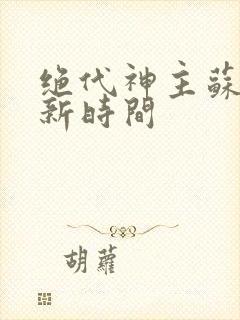 绝代神主蘇
新時間
胡蘿